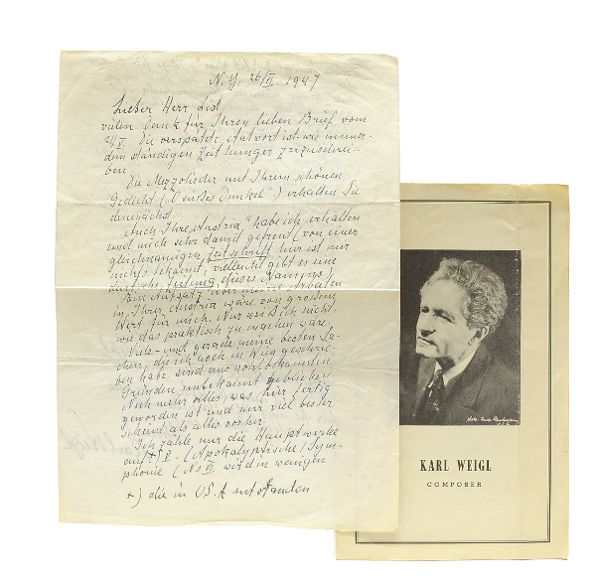 N.Y. 26/VI. 1947
Lieber Herr List,
vielen Dank für Ihren lieben Brief vom
Die verspätete Antwort ist wie immer
dem ständigen Zeithunger zuzuschrei-
ben
Die Mezzolieder mit Ihrem schönen
Gedicht ("O Dunkel") erhalten Sie
demnächst
Auch Ihre "Austria" habe ich erhalten
und mich sehr damit gefreut (von einer
gleichnamigen Zeitschrift hier ist mir
nichts bekannt, vielleicht gibt es eine
Zeitung dieses Namens)
Ein Aufsatz über meine Arbeiten
in Ihrer Austria wäre von großem
Wert für mich. Nur weiß ich nicht,
wie das praktisch zu machen wäre
Viele - und gerade meine besten Sa-
chen, die ich noch in Wien geschrie-
ben habe, sind aus wohlbekannten
Gründen unbekannt geblieben
Noch mehr alles, was hier fertig
geworden ist und mir viel besser
scheint als alles vorher
Ich zähle nur die Hauptwerke
auf +) V - (Apokalyptische) Sym-
phonie (No VI wird in wenigen
+) die in U.S.A entstanden
KARL WEIGL
COMPOSER